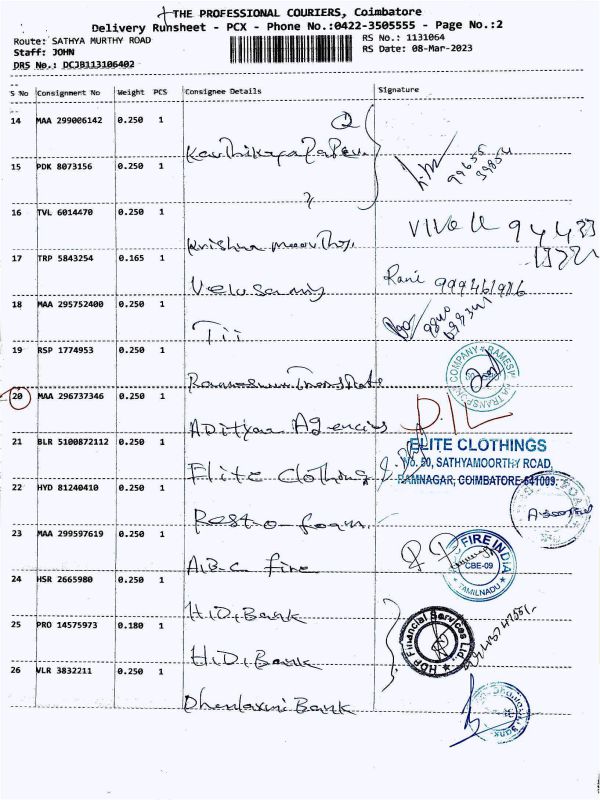 THE PROFESSIONAL COURIERS, Coimbatore
Delivery Runsheet - PCX - Phone No.:0422-3505555 - Page No.:2
Route: SATHYA MURTHY ROAD
RS No.: 1131064
Staff: JOHN
RS Date: 08-Mar-2023
DRS No.: DCJB113106402
S No Consignment No Weight PCS Consignee Details Signature
14 MAA 299006142 0.250 1
15 PDK 8073156 0.250 1
99655
59854
16 TVL 6014470 0.250 1
Krishna moorthy
17 TRP 5843254 0.165 1
Velusamy
Rani 999461986
18 MAA 295752400 0.250 1
Tii
19 RSP 1774953 0.250 1
COMPANY RAMESH TRANSPORT
20 MAA 296737346 0.250 1
Adityan Agencies
D.I.L
21 BLR 5100872112 0.250 1
Elite Clothing
ELITE CLOTHINGS
No. 50, SATHYAMOORTHY ROAD,
RAMNAGAR, COIMBATORE-641009.
22 HYD 81240410 0.250 1
Restro-foam
23 MAA 299597619 0.250 1
A.B.C fire
FIRE INDIA
CBE-09
TAMILNADU
24 HSR 2665980 0.250 1
H.D. Bank
25 PRO 14575973 0.180 1
H.D. Bank
HDF Financial Services Ltd.
26 VLR 3832211 0.250 1
Dhanlaxmi Bank